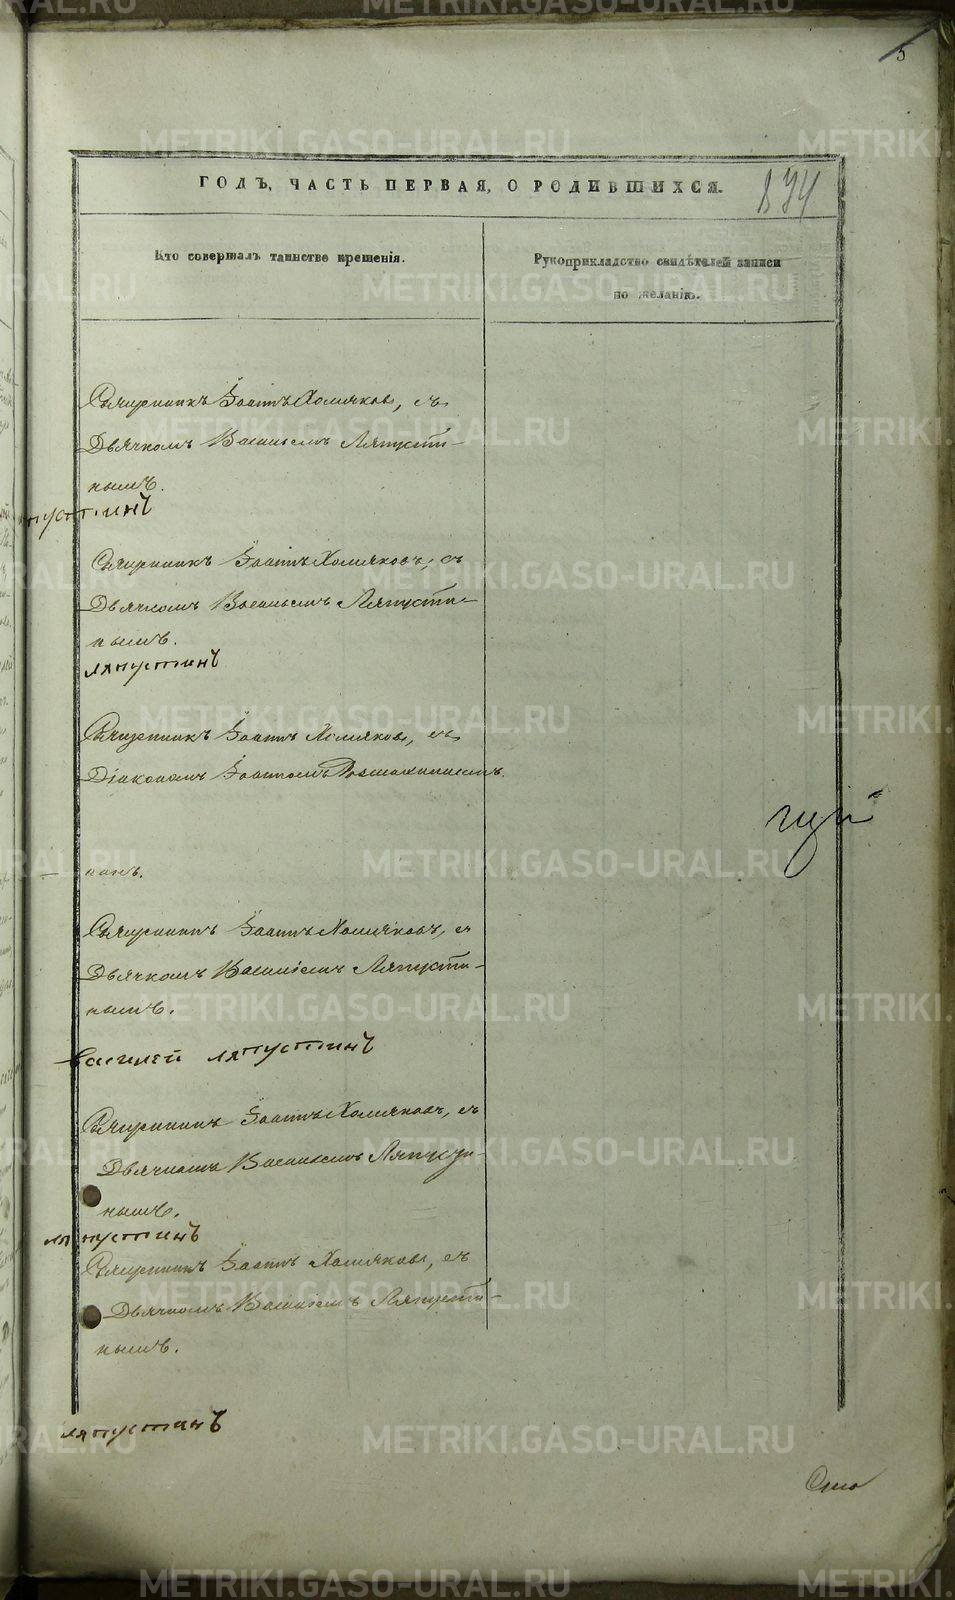 5
ГОДЪ, ЧАСТЬ ПЕРВАЯ, О РОДИВШИХСЯ.
Кто совершалъ таинство крещенія.
Рукоприкладство свидѣтелей записи
по желанію.
Священникъ Іоаннъ Хомяковъ, съ
Дьячкомъ Василіемъ Ляпусти-
нымъ.
пустинъ
Священникъ Іоаннъ Хомяковъ, съ
Дьячкомъ Василіемъ Ляпусти-
нымъ.
ляпустинъ
Священникъ Іоаннъ Хомяковъ, съ
Діакономъ Іоанномъ
Священникъ Іоаннъ Хомяковъ, съ
Дьячкомъ Василіемъ Ляпусти-
нымъ.
василей ляпустинъ
Священникъ Іоаннъ Хомяковъ, съ
Дьячкомъ Василіемъ Ляпусти-
нымъ.
ляпустинъ
Священникъ Іоаннъ Хомяковъ, съ
Дьячкомъ Василіемъ Ляпусти-
нымъ.
ляпустинъ
METRIKI.GASO-URAL.RU